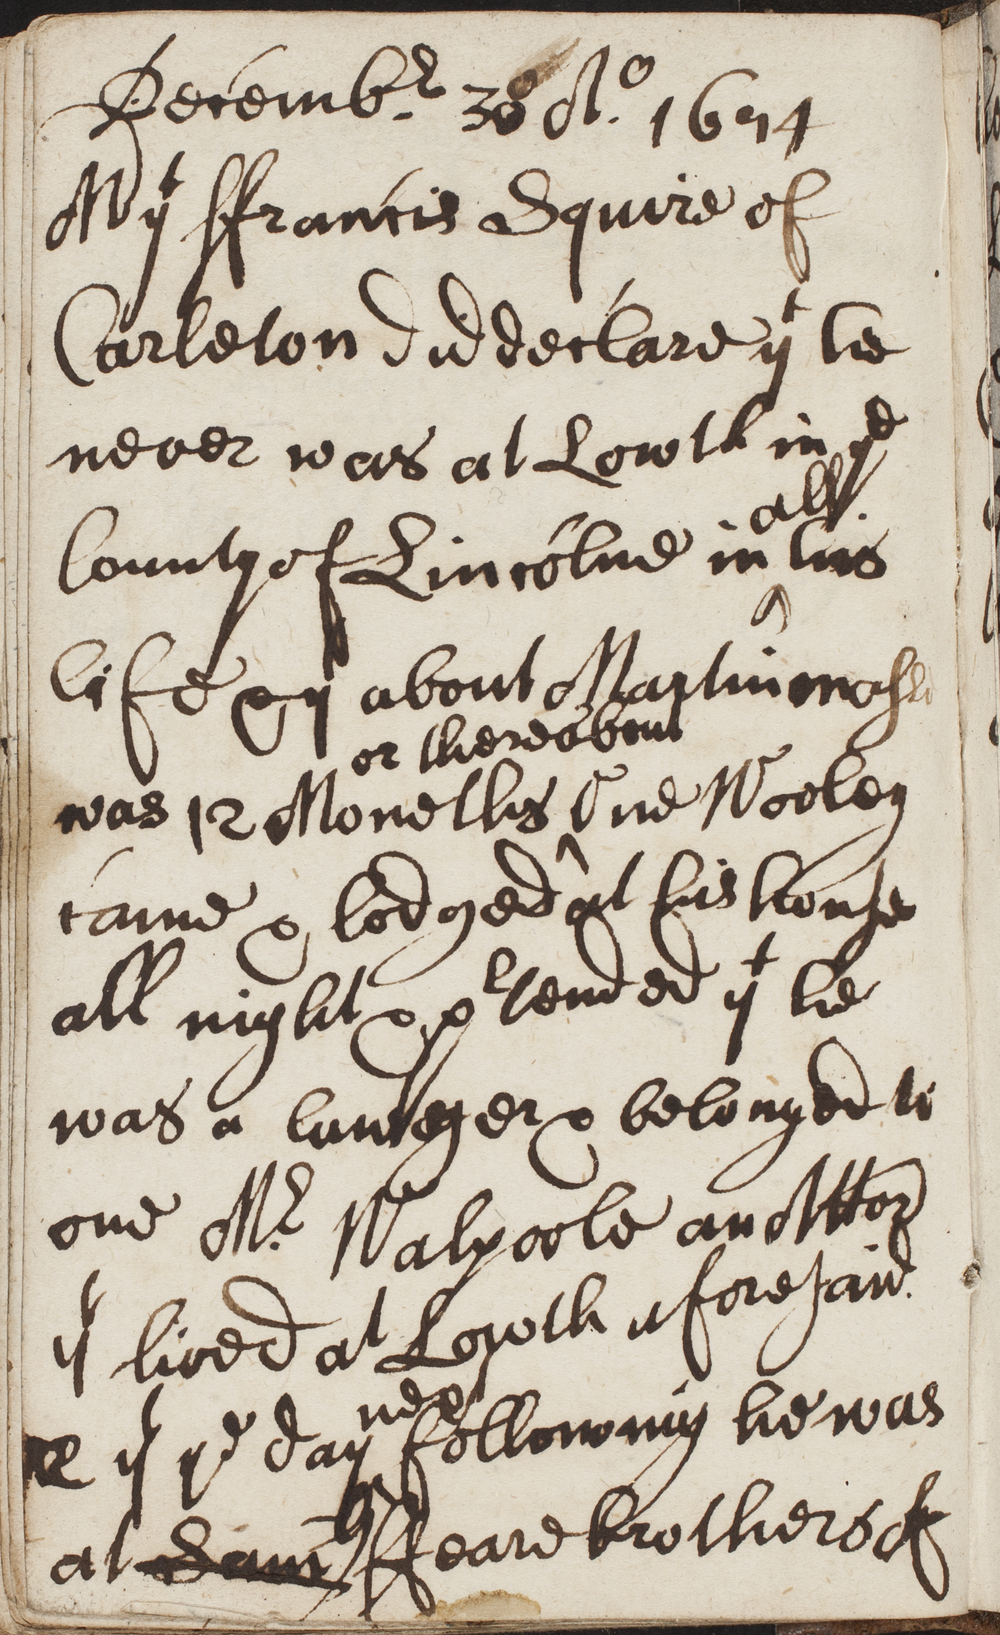 Decembr. 30th. 1674
My ffrancis Squire of
Carleton did declare yt he
never was at Lowth in ye
County of Lincolne in all his
life & yt about Martinmasse
was 12 Monethes One Wooley
or thereabout
came & lodged at his house
all night & prtended yt he
was a lawyer & belonged to
one Mr. Walpoole an Attor
yt lived at Lowth aforesaid.
& yt ye day next following he was
at Sam ffeare brothers of